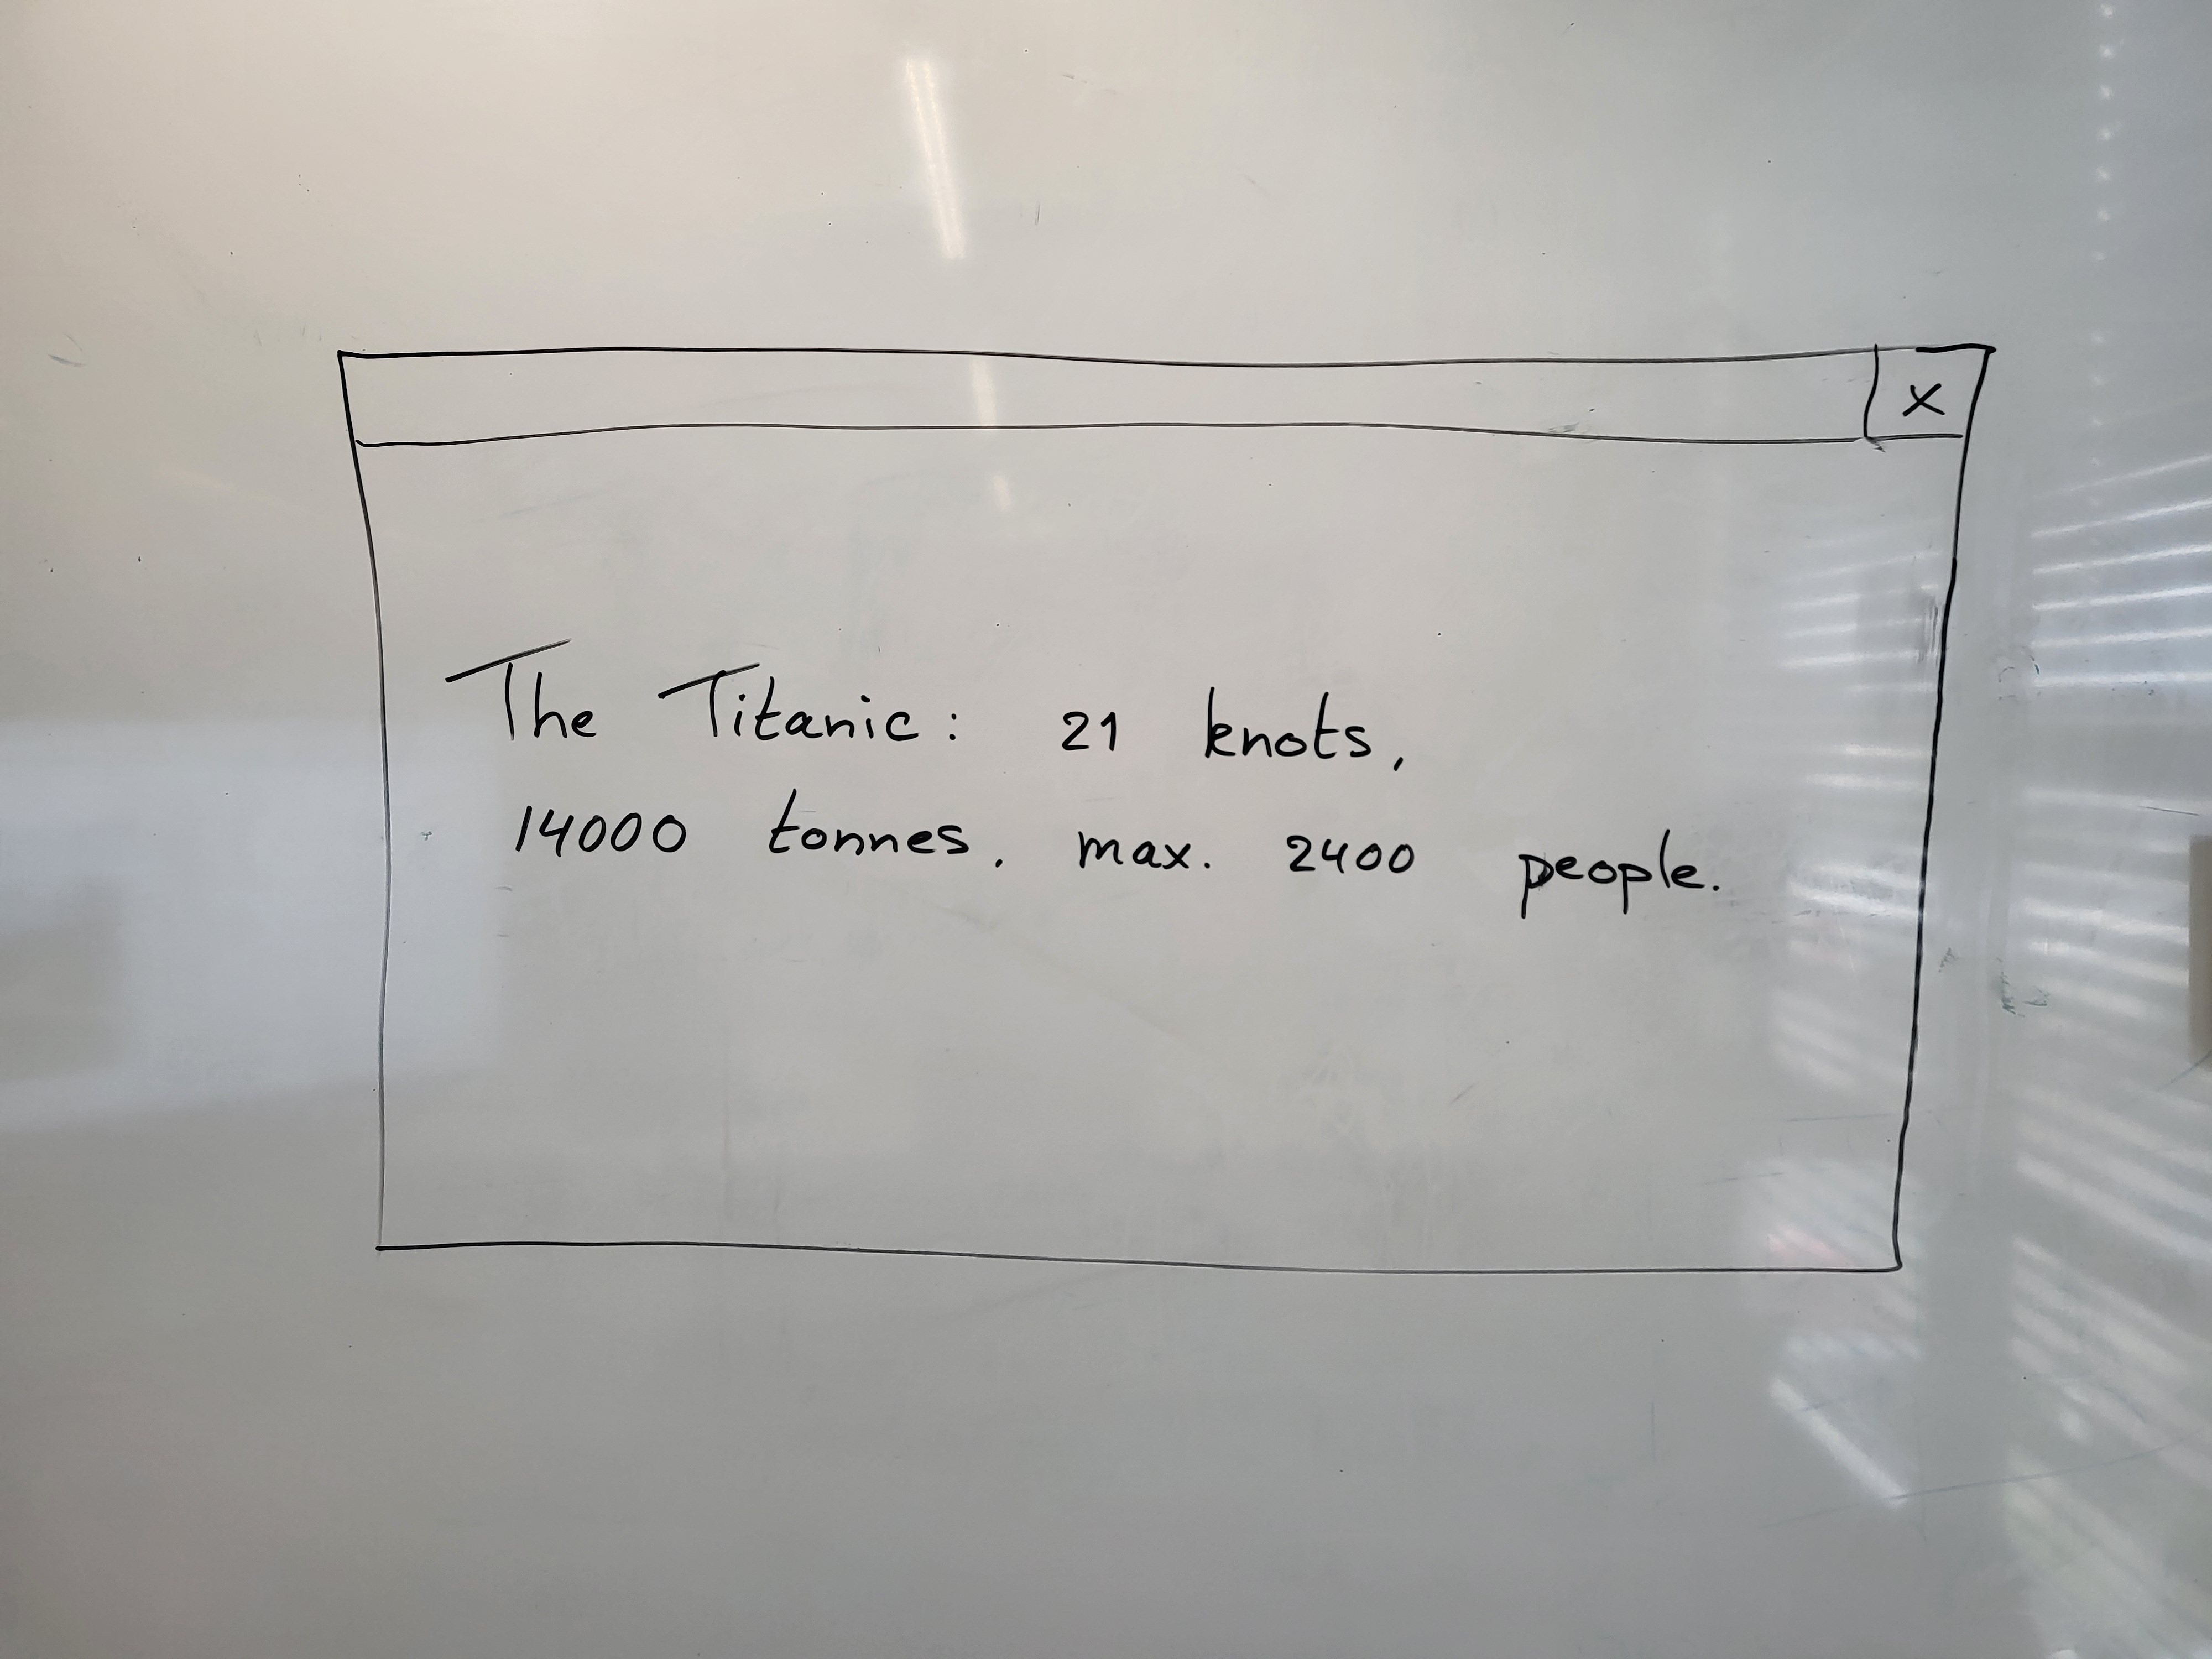 X
The Titanic: 21 knots,
14000 tonnes, max. 2400 people.